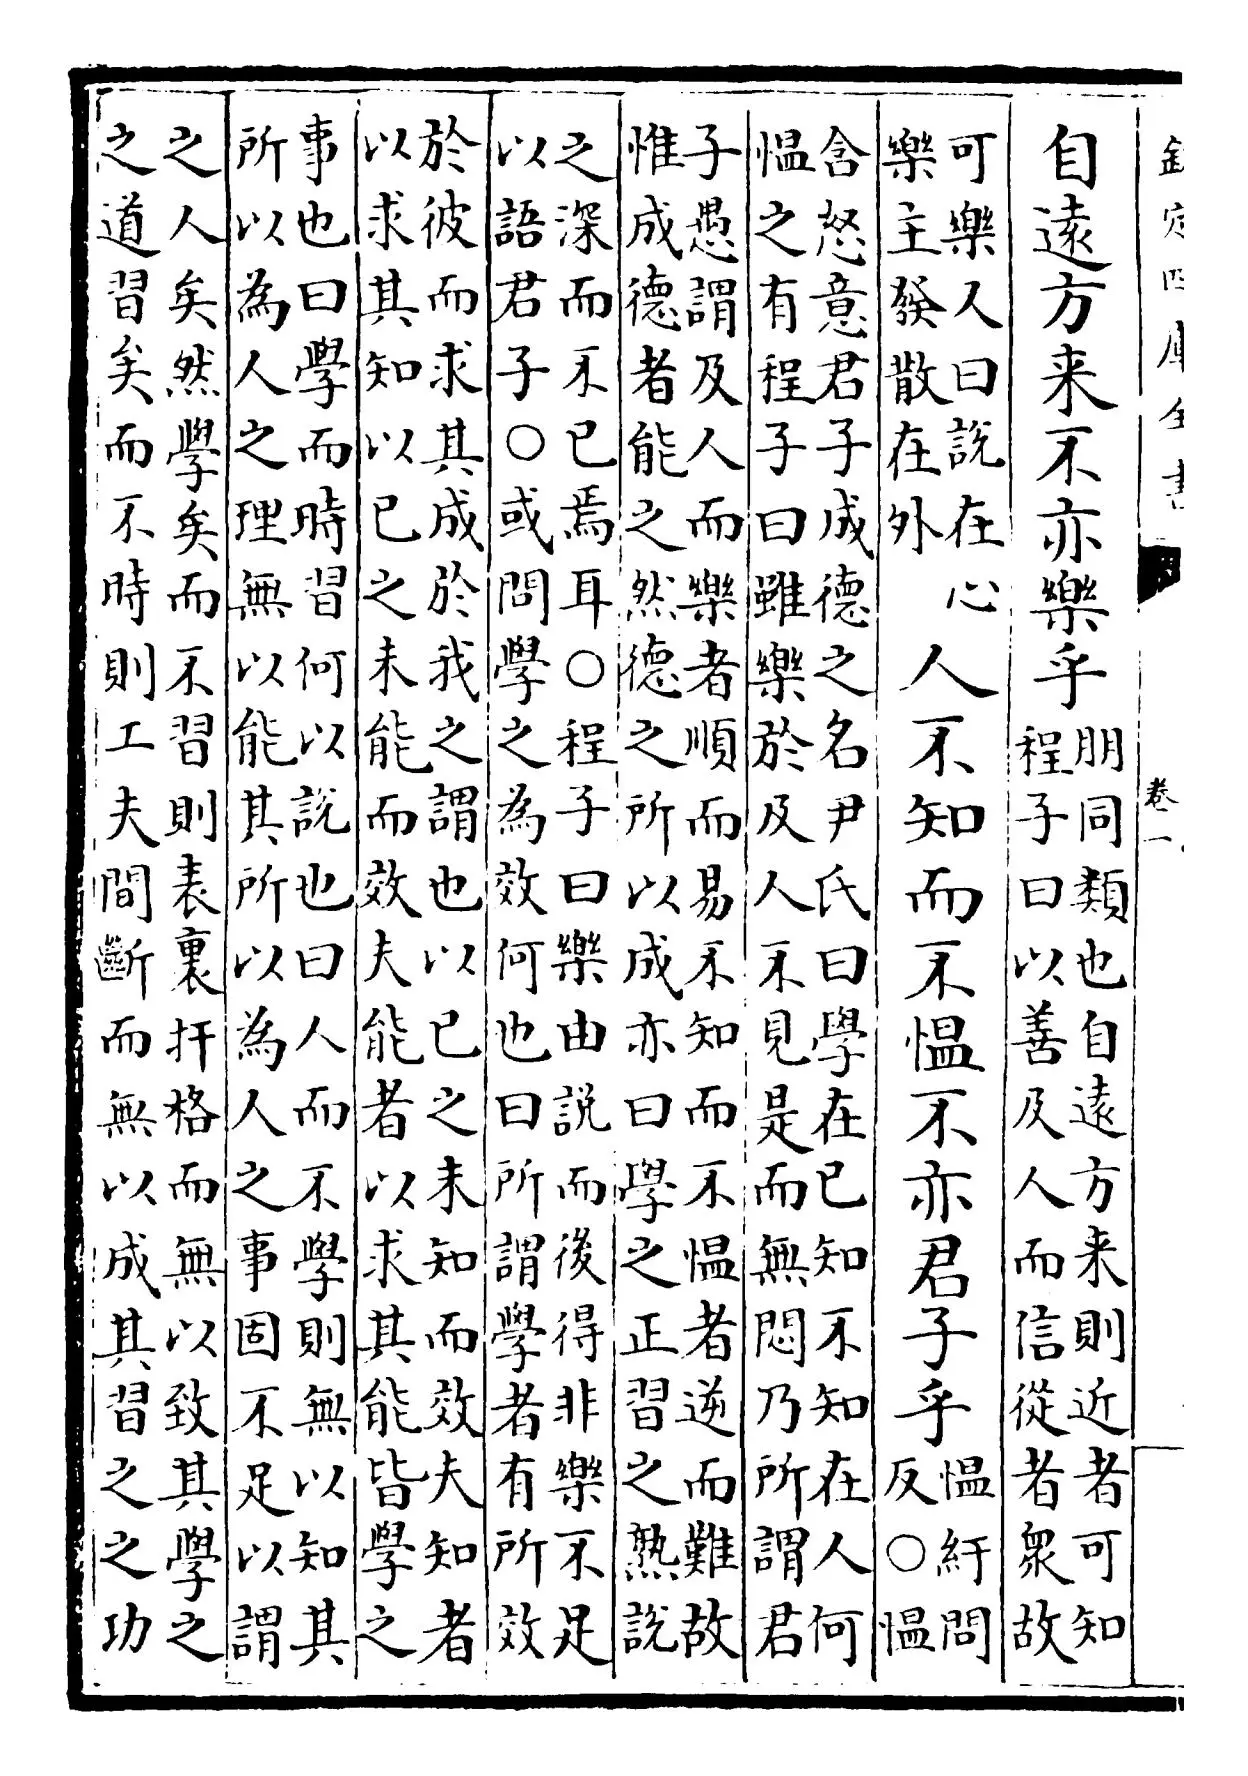 欽定四庫全書
卷一
自遠方来不亦樂乎
朋同類也自遠方来則近者可知
程子曰以善及人而信從者衆故
可樂人曰說在心
樂主發散在外
人不知而不愠不亦君子乎
愠紆問
反○愠
含怒意君子成德之名尹氏曰學在已知不知在人何
愠之有程子曰雖樂於及人不見是而無悶乃所謂君
子愚謂及人而樂者順而易不知而不愠者逆而難故
惟成德者能之然德之所以成亦曰學之正習之熟說
之深而不已焉耳○程子曰樂由說而後得非樂不足
以語君子○或問學之為效何也曰所謂學者有所效
於彼而求其成於我之謂也以已之未知而效夫知者
以求其知以已之未能而效夫能者以求其能皆學之
事也曰學而時習何以說也曰人而不學則無以知其
所以為人之理無以能其所以為人之事固不足以謂
之人矣然學矣而不習則表裏扞格而無以致其學之
之道習矣而不時則工夫間斷而無以成其習之之功